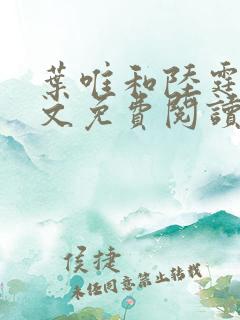 葉唯和陸霆
文免費閱讀
侯捷
未经同意禁止转载